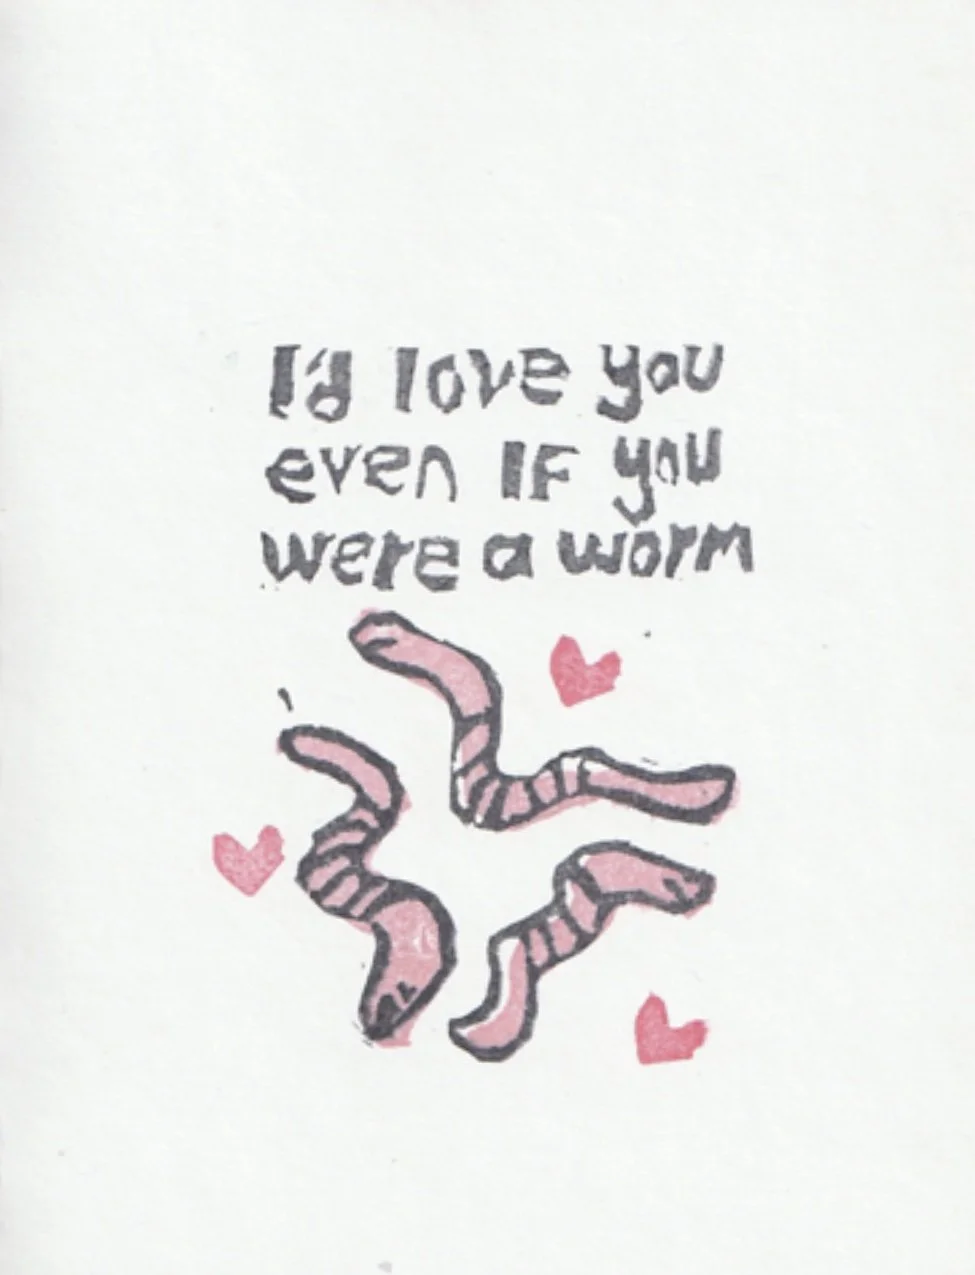 I'd love you
even IF you
were a worm